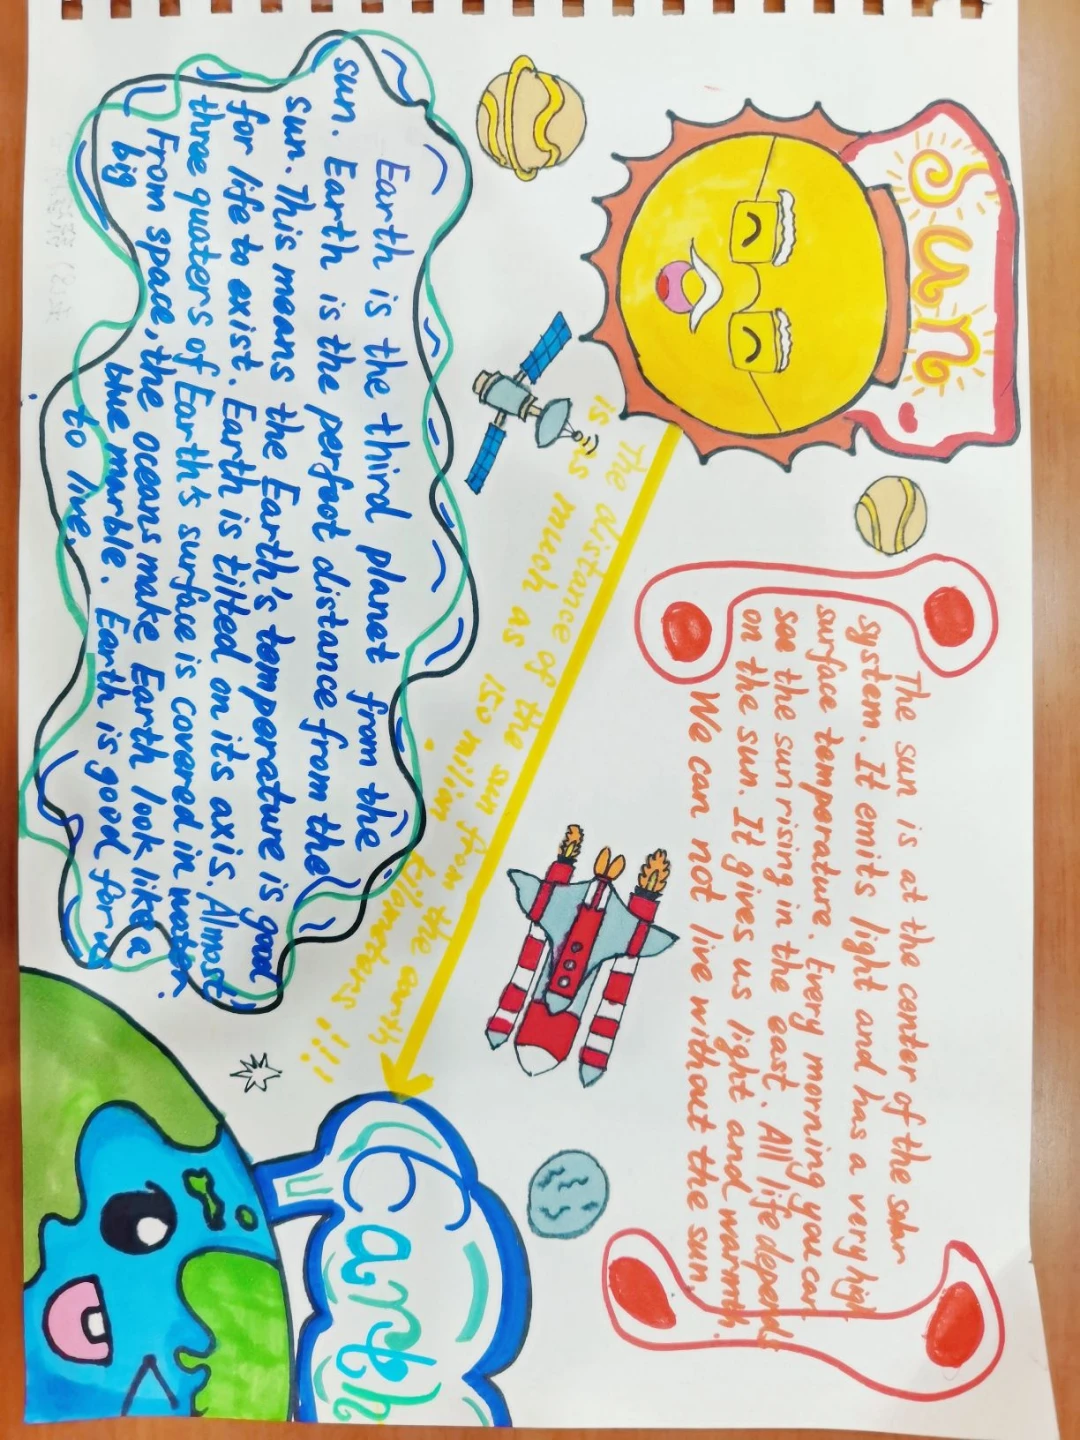 Sun
The sun is at the center of the solar
system. It emits light and has a very high
surface temperature. Every morning you can
see the sun rising in the east. All life depends
on the sun. It gives us light and warmth.
We can not live without the sun.
The distance of the sun from the earth
is as much as 150 milion kilometers!!!!
Earth
Earth is the third planet from the
sun. Earth is the perfect distance from the
sun. This means the Earth's temperature is good
for life to exist. Earth is tilted on it's axis. Almost
three quaters of Earth's surface is covered in water.
From space, the oceans make Earth look like a
big blue marble. Earth is good for us
to live.